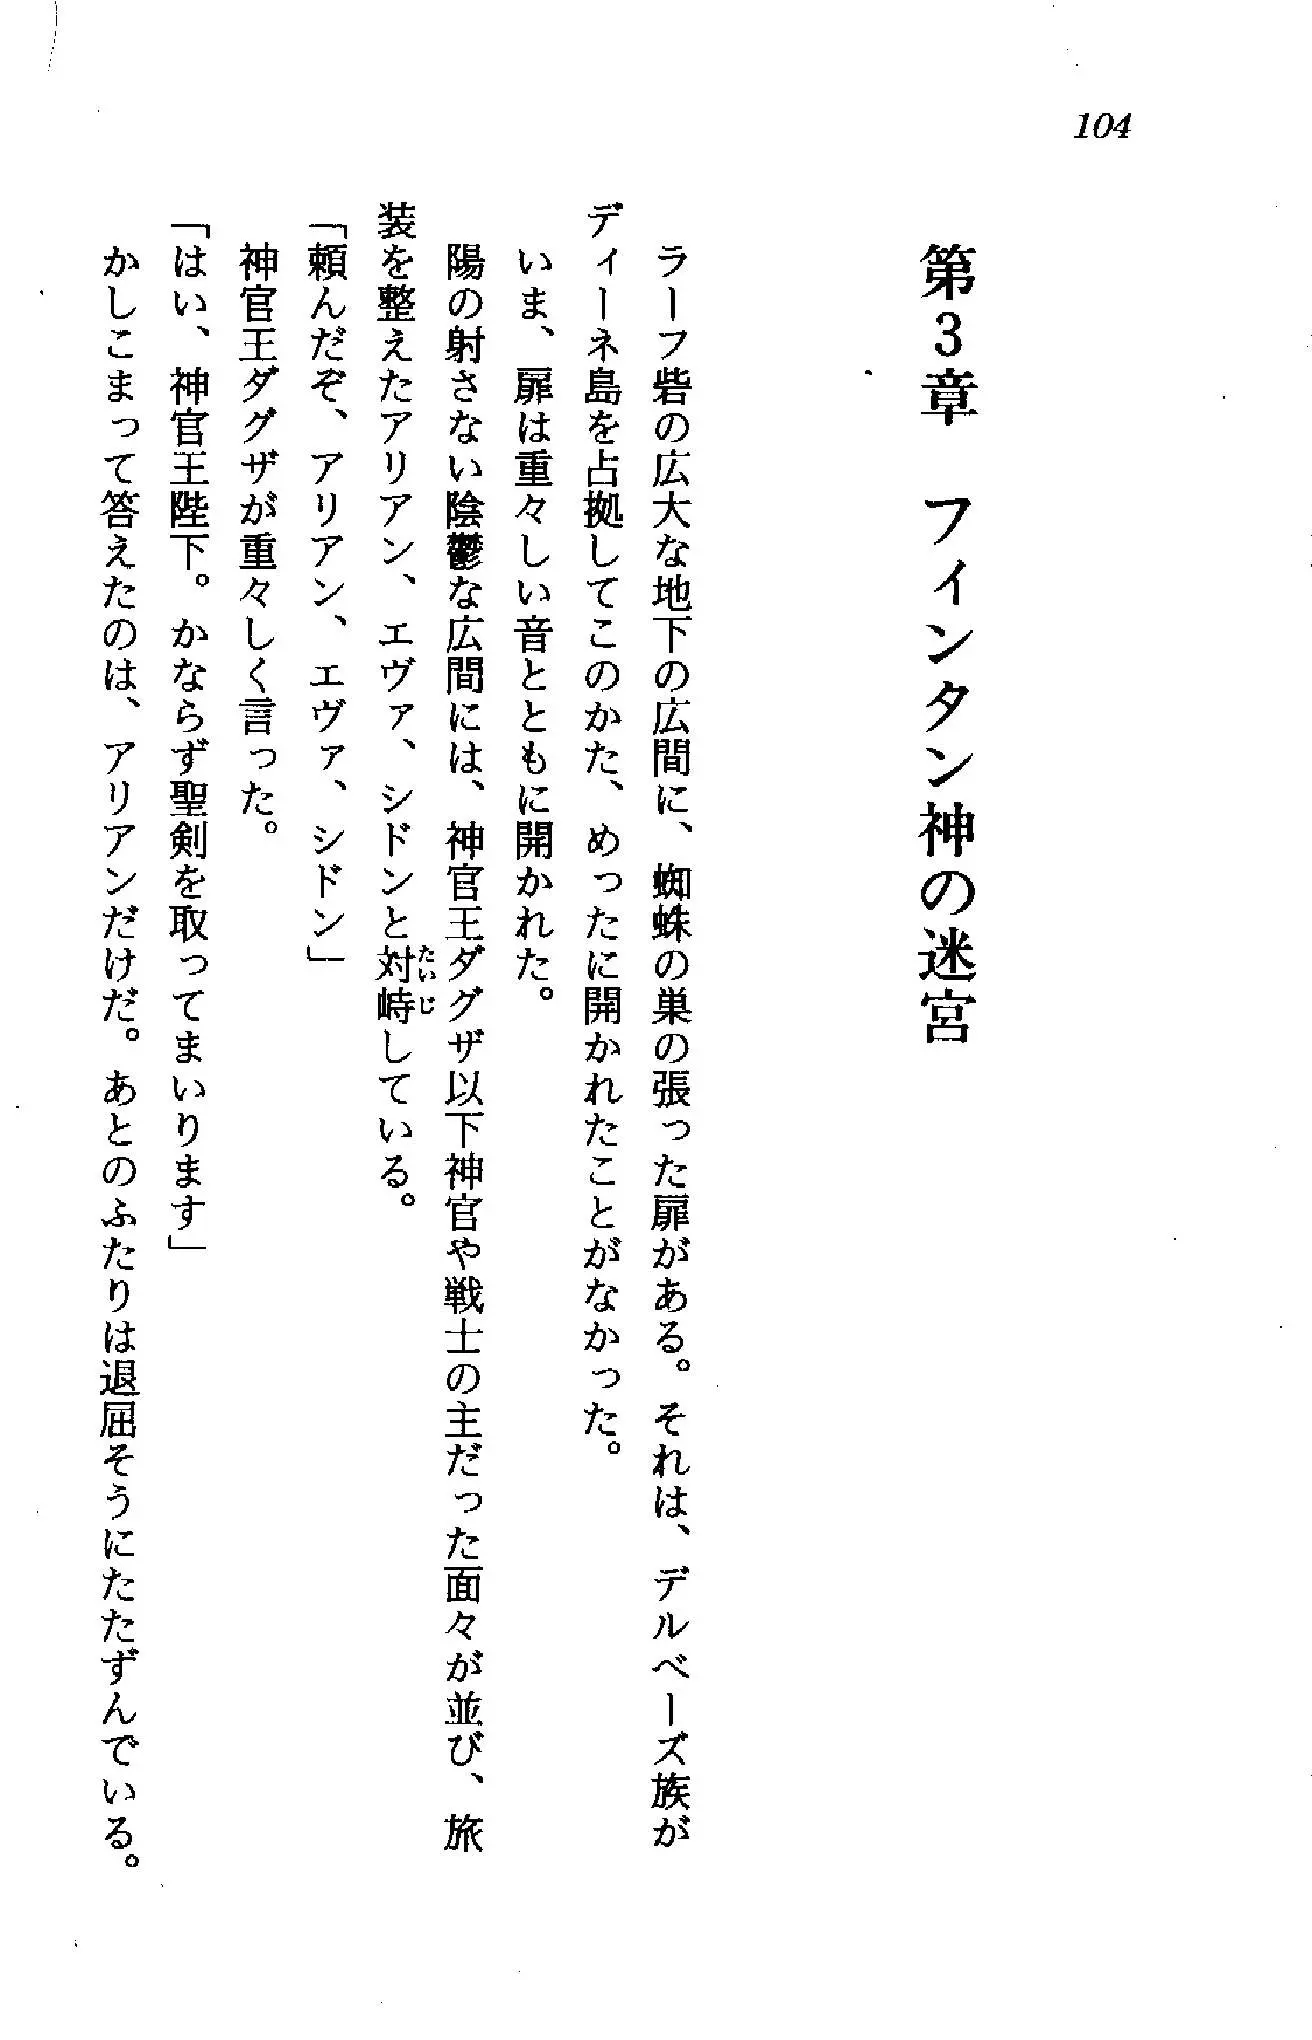 104
第3章　フィンタン神の迷宮
　ラーフ砦の広大な地下の広間に、蜘蛛の巣の張った扉がある。それは、デルベーズ族が
ディーネ島を占拠してこのかた、めったに開かれたことがなかった。
　いま、扉は重々しい音とともに開かれた。
　陽の射さない陰鬱な広間には、神官王ダグザ以下神官や戦士の主だった面々が並び、旅
装を整えたアリアン、エヴァ、シドンと対峙している。
たいじ
「頼んだぞ、アリアン、エヴァ、シドン」
　神官王ダグザが重々しく言った。
「はい、神官王陛下。かならず聖剣を取ってまいります」
　かしこまって答えたのは、アリアンだけだ。あとのふたりは退屈そうにたたずんでいる。